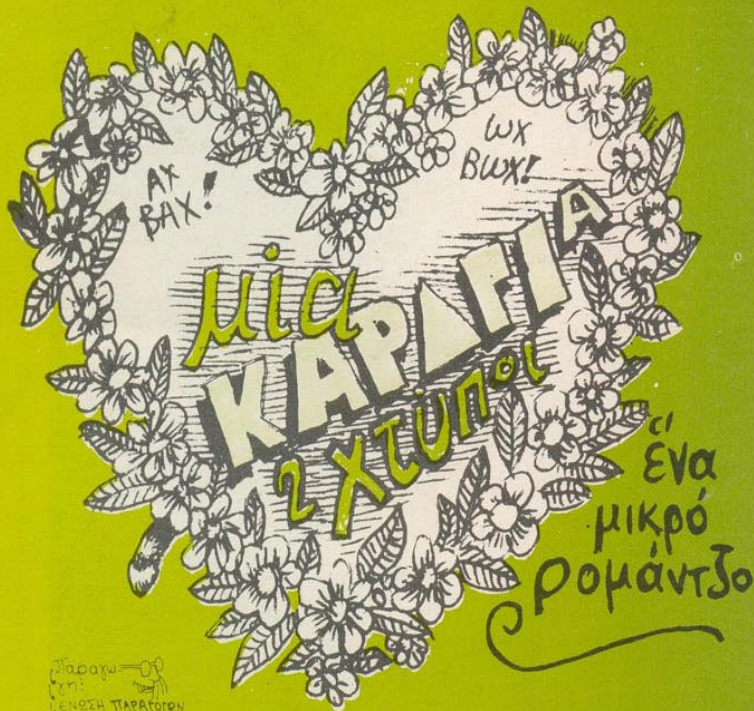 ΑΧ
ΒΑΧ!
ωχ
ΒΩΧ!
μία
ΚΑΡΔΓΙΑ
2 χτύποι
ἕνα
μικρό
ρομάντζο
Παραγω
γη:
ΕΝΩΣΗ ΠΑΡΑΓΩΓΩΝ